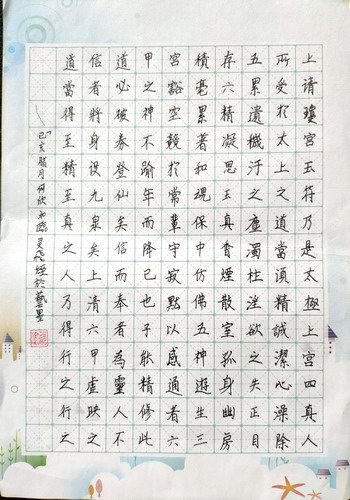 上清瓊宮玉符乃是太極上宮四真人
所受於太上之道當須精誠潔心澡除
五累遺穢汙之塵濁杜淫欲之失正目
存六精凝思玉真香煙散室孤身幽房
積毫累著和魂保中仿佛五神遊生三
宮豁空競於常輩守寂默以感通者六
甲之神不踰年而降已也子能精修此
道必破券登仙矣信而奉者為靈人不
信者將身没九泉矣上清六甲虛映之
道當得至精至真之人乃得行之行之
己亥臘月何欣和臨灵飞经於藝墨